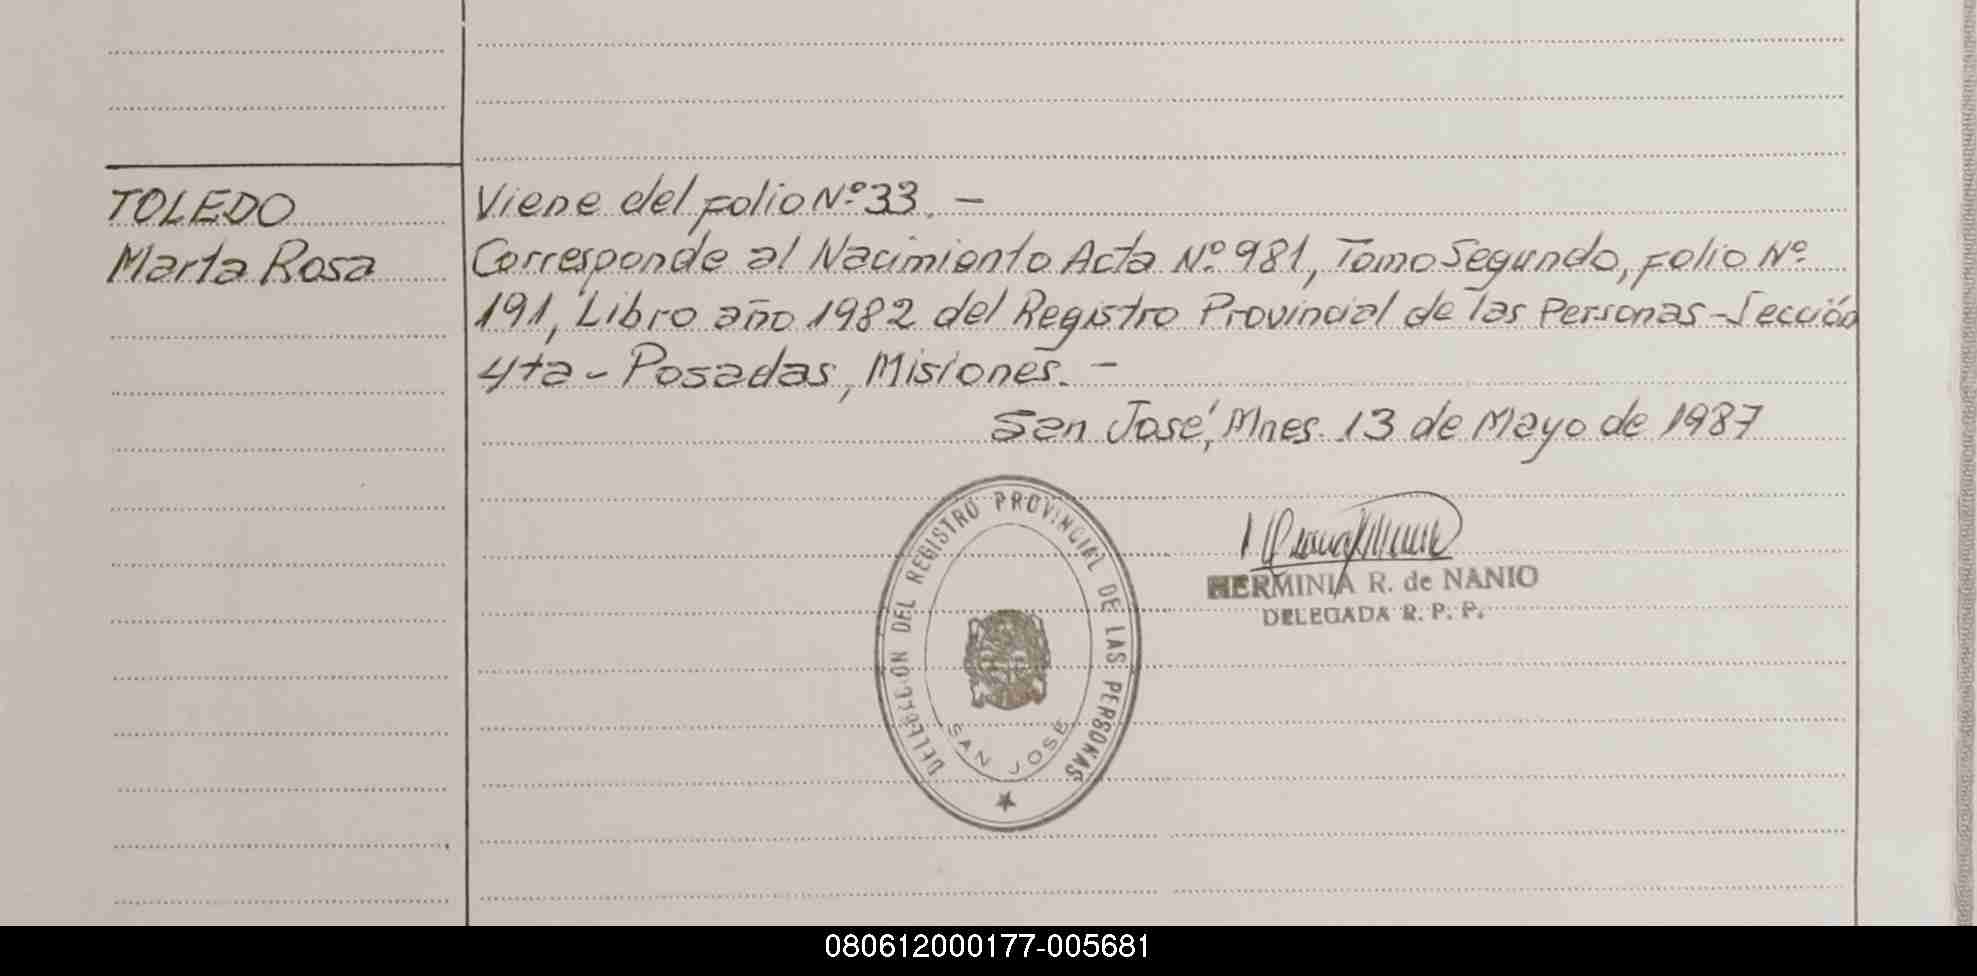 TOLEDO
Marta Rosa
Viene del folio Nº 33. –
Corresponde al Nacimiento Acta Nº 981, Tomo Segundo, folio Nº
191, Libro año 1982 del Registro Provincial de las Personas - Sección
4ta - Posadas, Misiones. –
San José, Mnes. 13 de Mayo de 1987
DELEGACION DEL REGISTRO PROVINCIAL DE LAS PERSONAS
SAN JOSE
HERMINIA R. de NANIO
DELEGADA R. P. P.
080612000177-005681